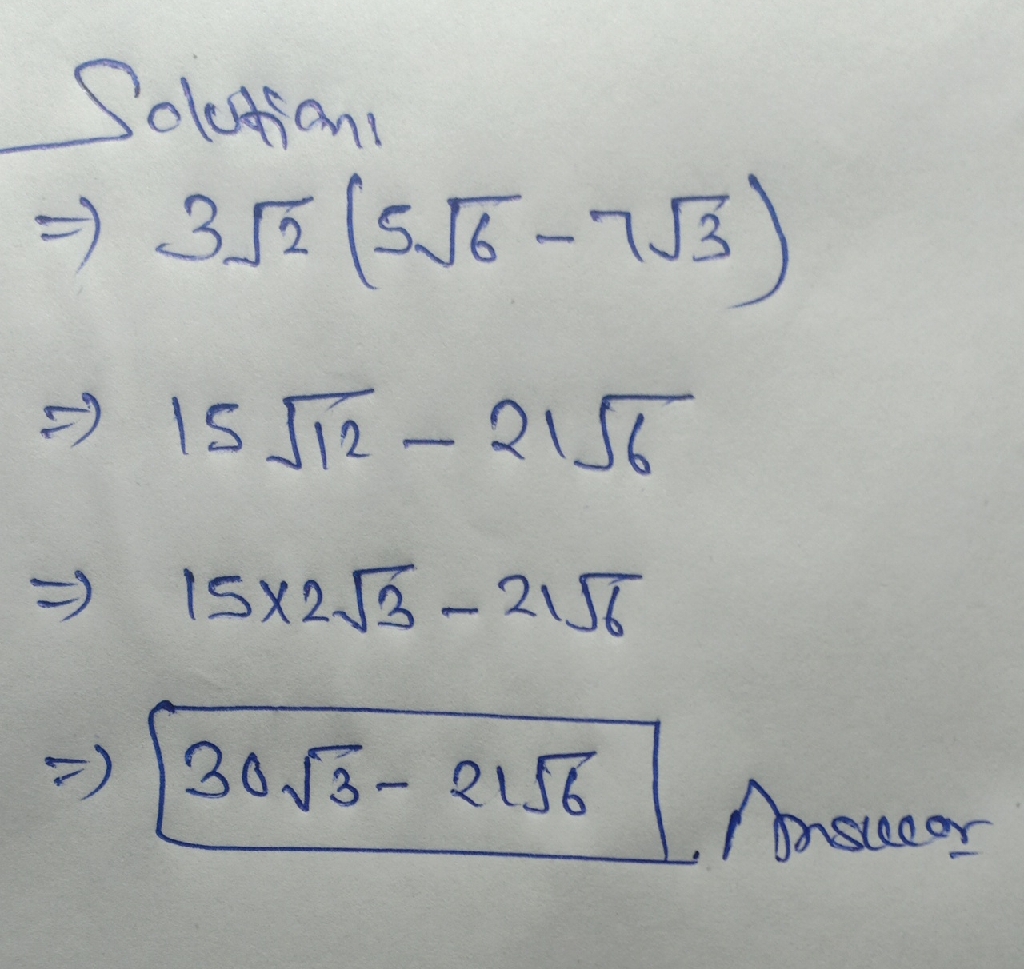 Solution:
⇒ 3√2 (5√6 - 7√3)
⇒ 15√12 - 21√6
⇒ 15×2√3 - 21√6
⇒ 30√3 - 21√6. Answer